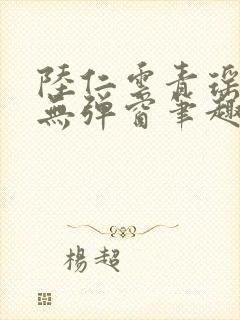 陸仁雲青瑤
無彈窗筆趣
楊超